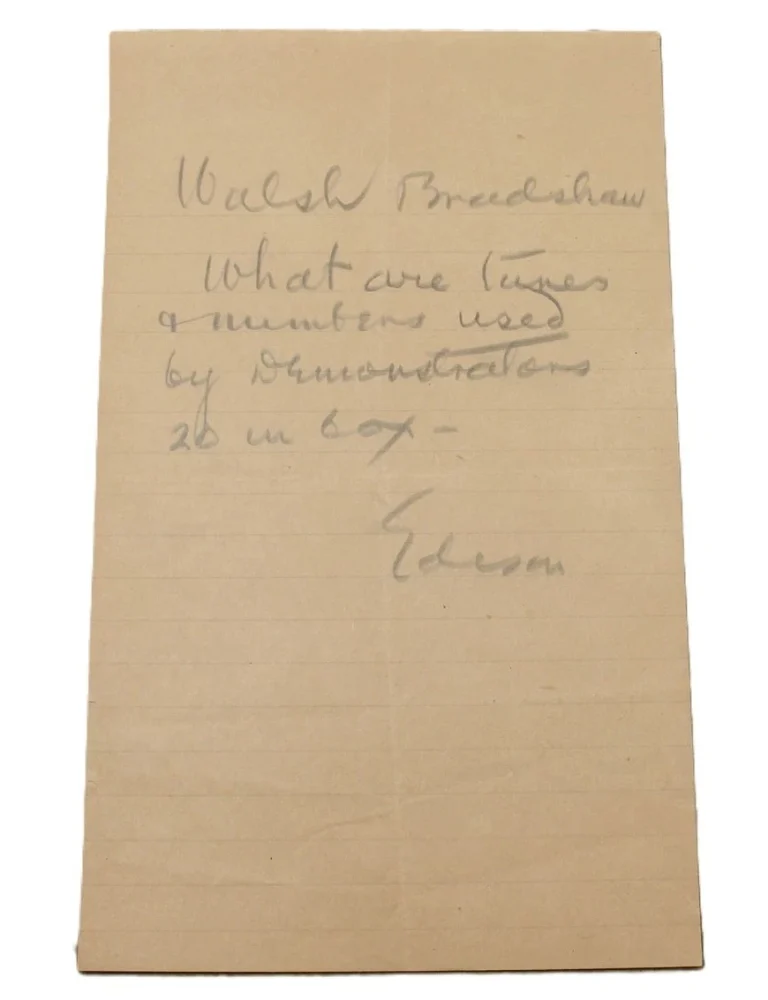 Walsh Bradshaw
What are tunes
& numbers used
by Demonstrators
20 in box -
Edison